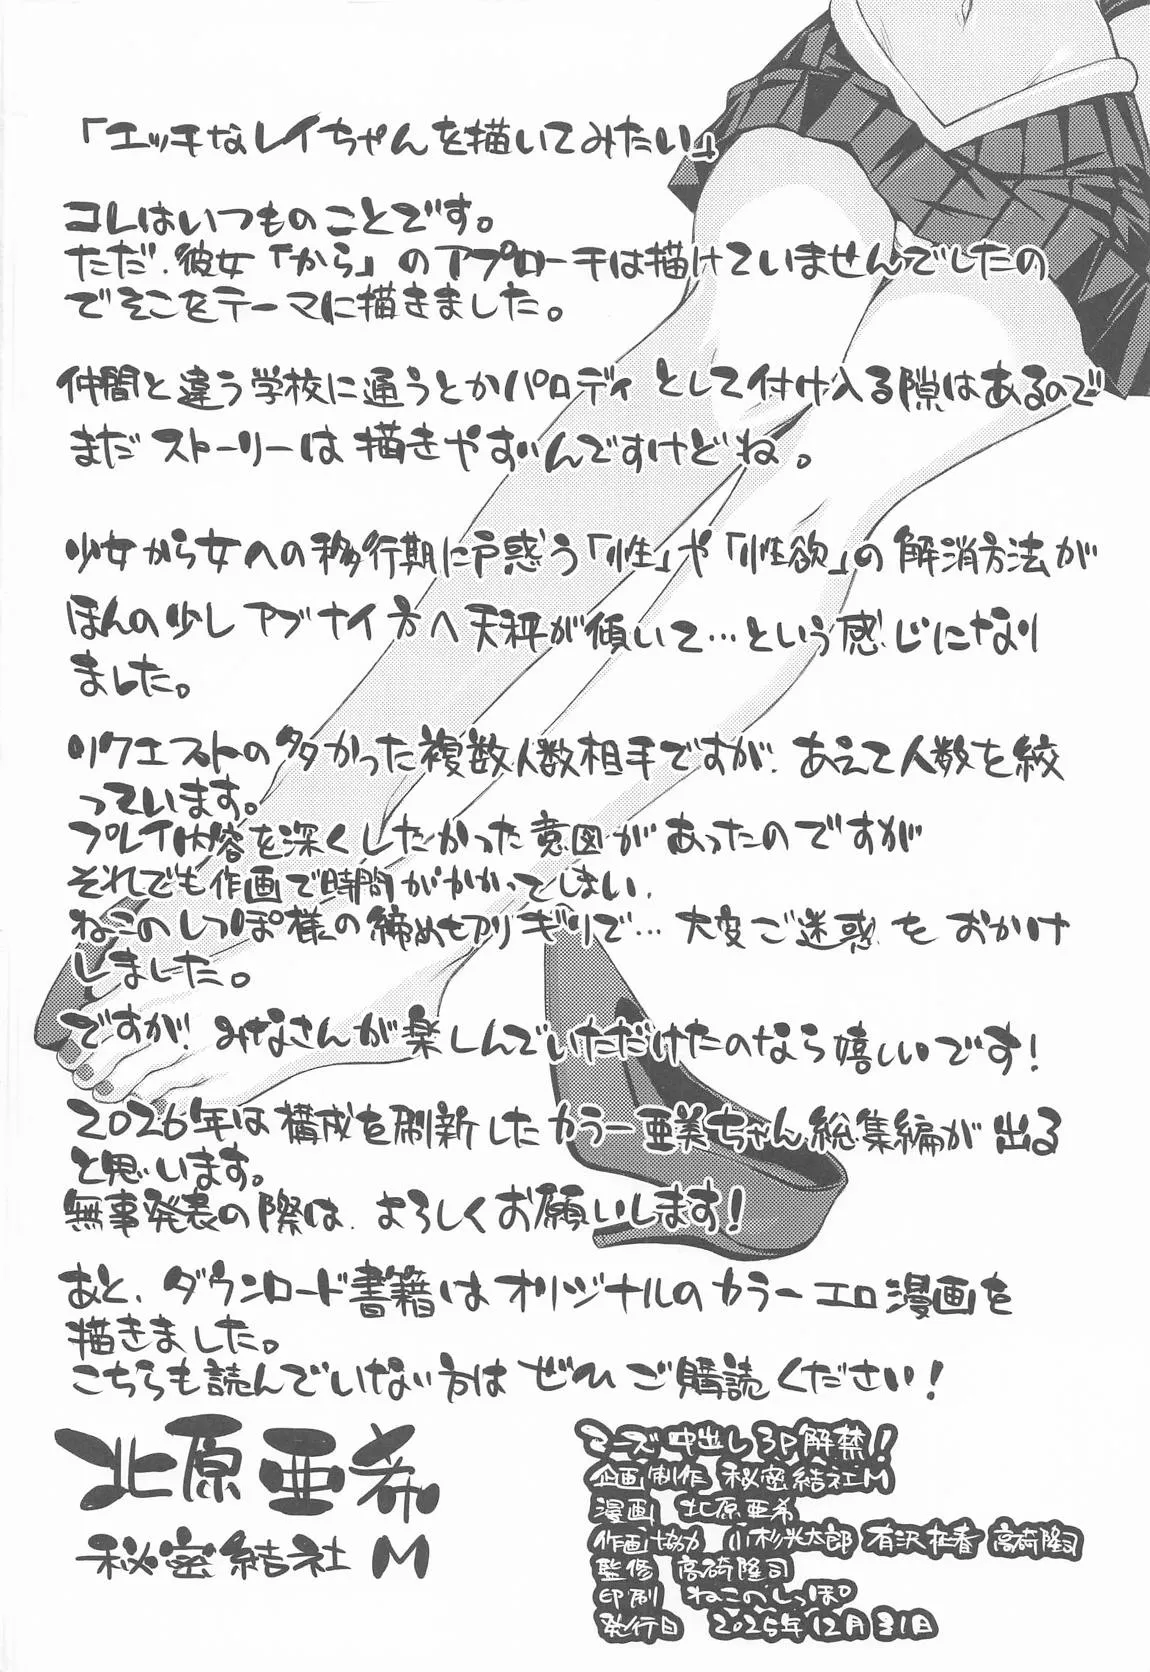 「エッチなレイちゃんを描いてみたい」
コレはいつものことです。
ただ、彼女「から」のアプローチは描けていませんでしたの
でそこをテーマに描きました。
仲間と違う学校に通うとかパロディとして付け入る隙はあるので
まだストーリーは描きやすいんですけどね。
少女から女への移行期に戸惑う「性」や「性欲」の解消方法が
ほんの少しアブナイ方へ天秤が傾いて…という感じになり
ました。
リクエストの多かった複数人数相手ですが、あえて人数を絞
っています。
プレイ内容を深くしたかった意図があったのですが
それでも作画で時間がかかってしまい、
ねこのしっぽ様の締め切りギリギリで…大変ご迷惑をおかけ
しました。
ですが！みなさんが楽しんでいただけたのなら嬉しいです！
2026年は構成を刷新したカラー亜美ちゃん総集編が出る
と思います。
無事発表の際は、よろしくお願いします！
あと、ダウンロード書籍はオリジナルのカラーエロ漫画を
描きました。
こちらも読んでいない方はぜひご購読ください！
北原亜希
秘密結社M
ミーズ中出し3P解禁！
企画制作 秘密結社M
漫画 北原亜希
作画協力 小杉光太郎 有沢桂春 高碕隆司
監修 高碕隆司
印刷 ねこのしっぽ
発行日 2025年12月31日